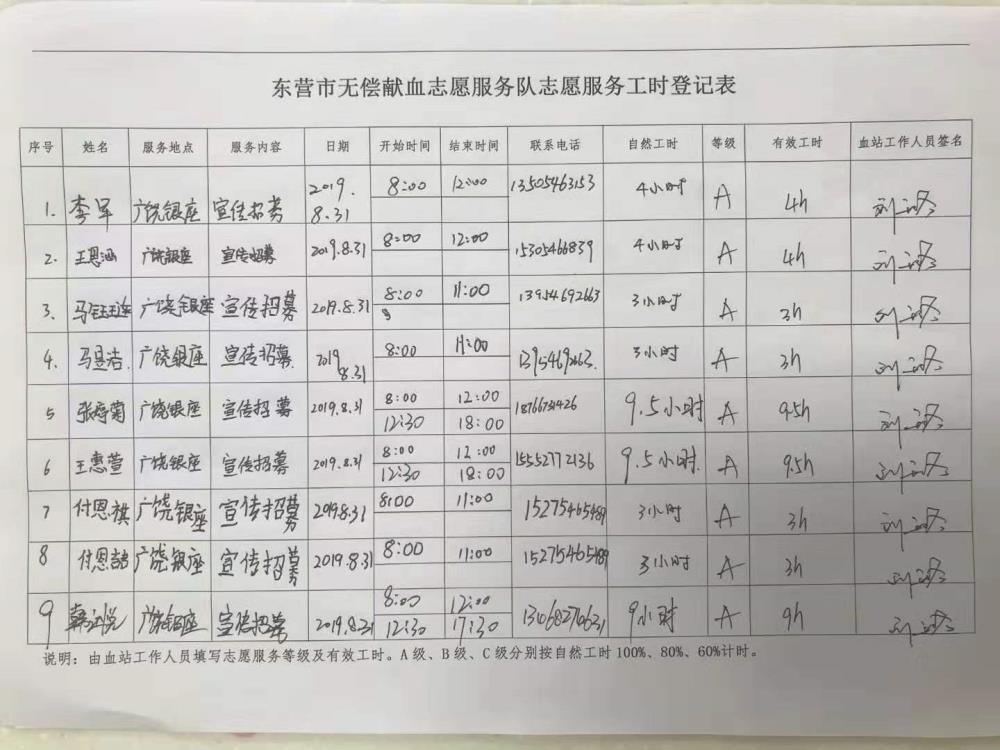 东营市无偿献血志愿服务队志愿服务工时登记表
序号 姓名 服务地点 服务内容 日期 开始时间 结束时间 联系电话 自然工时 等级 有效工时 血站工作人员签名
1. 李军 广饶银座 宣传招募 2019.8.31 8:00 12:00 13505463153 4小时 A 4h
2. 王恩涵 广饶银座 宣传招募 2019.8.31 8:00 12:00 15305466839 4小时 A 4h
3. 马 广饶银座 宣传招募 2019.8.31 8:00 11:00 13954692663 3小时 A 3h
4. 马昱洁. 广饶银座 宣传招募. 2019.8.31 8:00 11:00 13954692663. 3小时 A 3h
5 张 菊 广饶银座 宣传招募 2019.8.31 8:00 12:00 18766731426 9.5小时 A 9.5h
12:30 18:00
6 王惠萱 广饶银座 宣传招募 2019.8.31 8:00 12:00 15552772136 9.5小时. A 9.5h
12:30 18:00
7 付恩祺 广饶银座 宣传招募 2019.8.31 8:00 11:00 15275465489 3小时 A 3h
8 付恩喆 广饶银座 宣传招募 2019.8.31 8:00 11:00 15275465489 3小时 A 3h
9 韩 悦 广饶银座 宣传招募 2019.8.31 8:00 12:00 9小时 A 9h
12:30 17:30
说明：由血站工作人员填写志愿服务等级及有效工时。A级、B级、C级分别按自然工时100%、80%、60%计时。